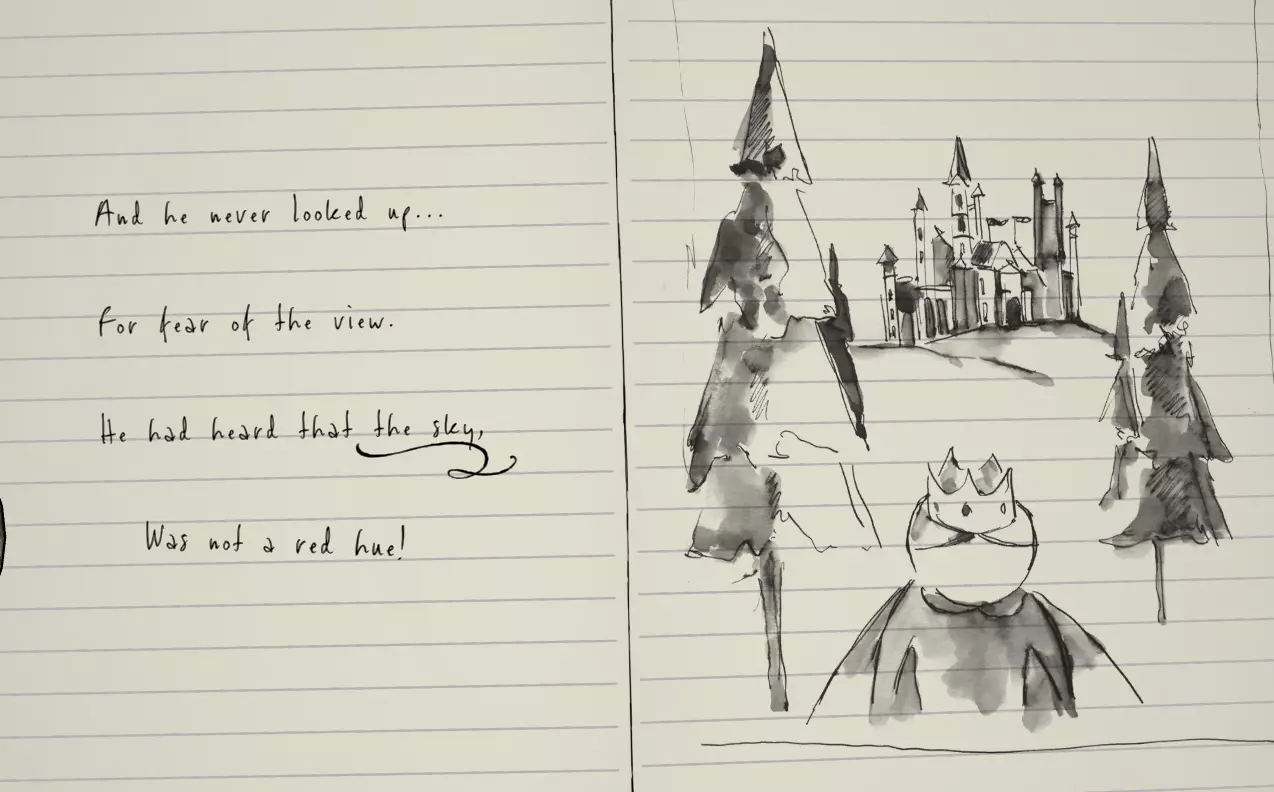 And he never looked up...
For fear of the view.
He had heard that the sky,
Was not a red hue!